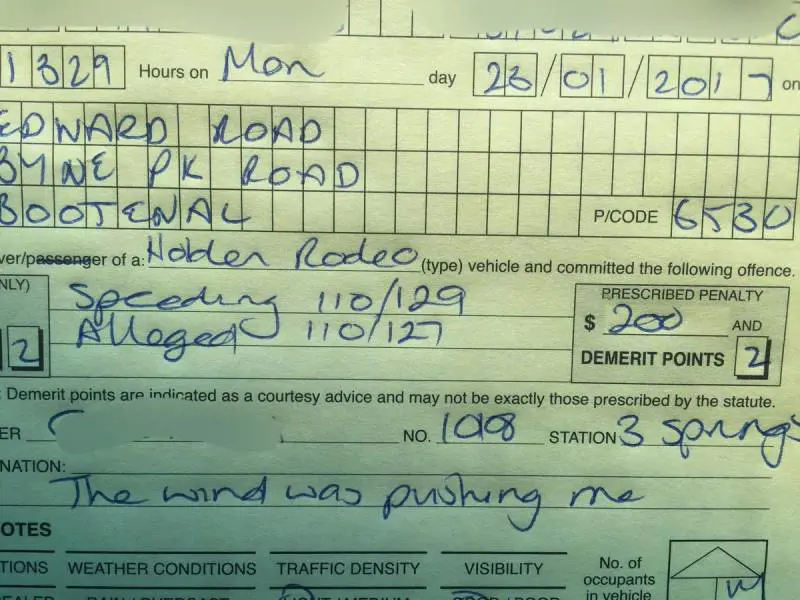 1329 Hours on Mon day 23/01/2017 on
EDWARD ROAD
BYNE PK ROAD
BOOTENAL P/CODE 6530
ver/passenger of a: Holden Rodeo (type) vehicle and committed the following offence.
NLY) Speeding 110/129 PRESCRIBED PENALTY
2 Alleged 110/127 $ 200 AND
DEMERIT POINTS 2
: Demerit points are indicated as a courtesy advice and may not be exactly those prescribed by the statute.
ER NO. STATION 3 Springs
NATION:
The wind was pushing me
OTES
TIONS WEATHER CONDITIONS TRAFFIC DENSITY VISIBILITY No. of
occupants
in vehicle